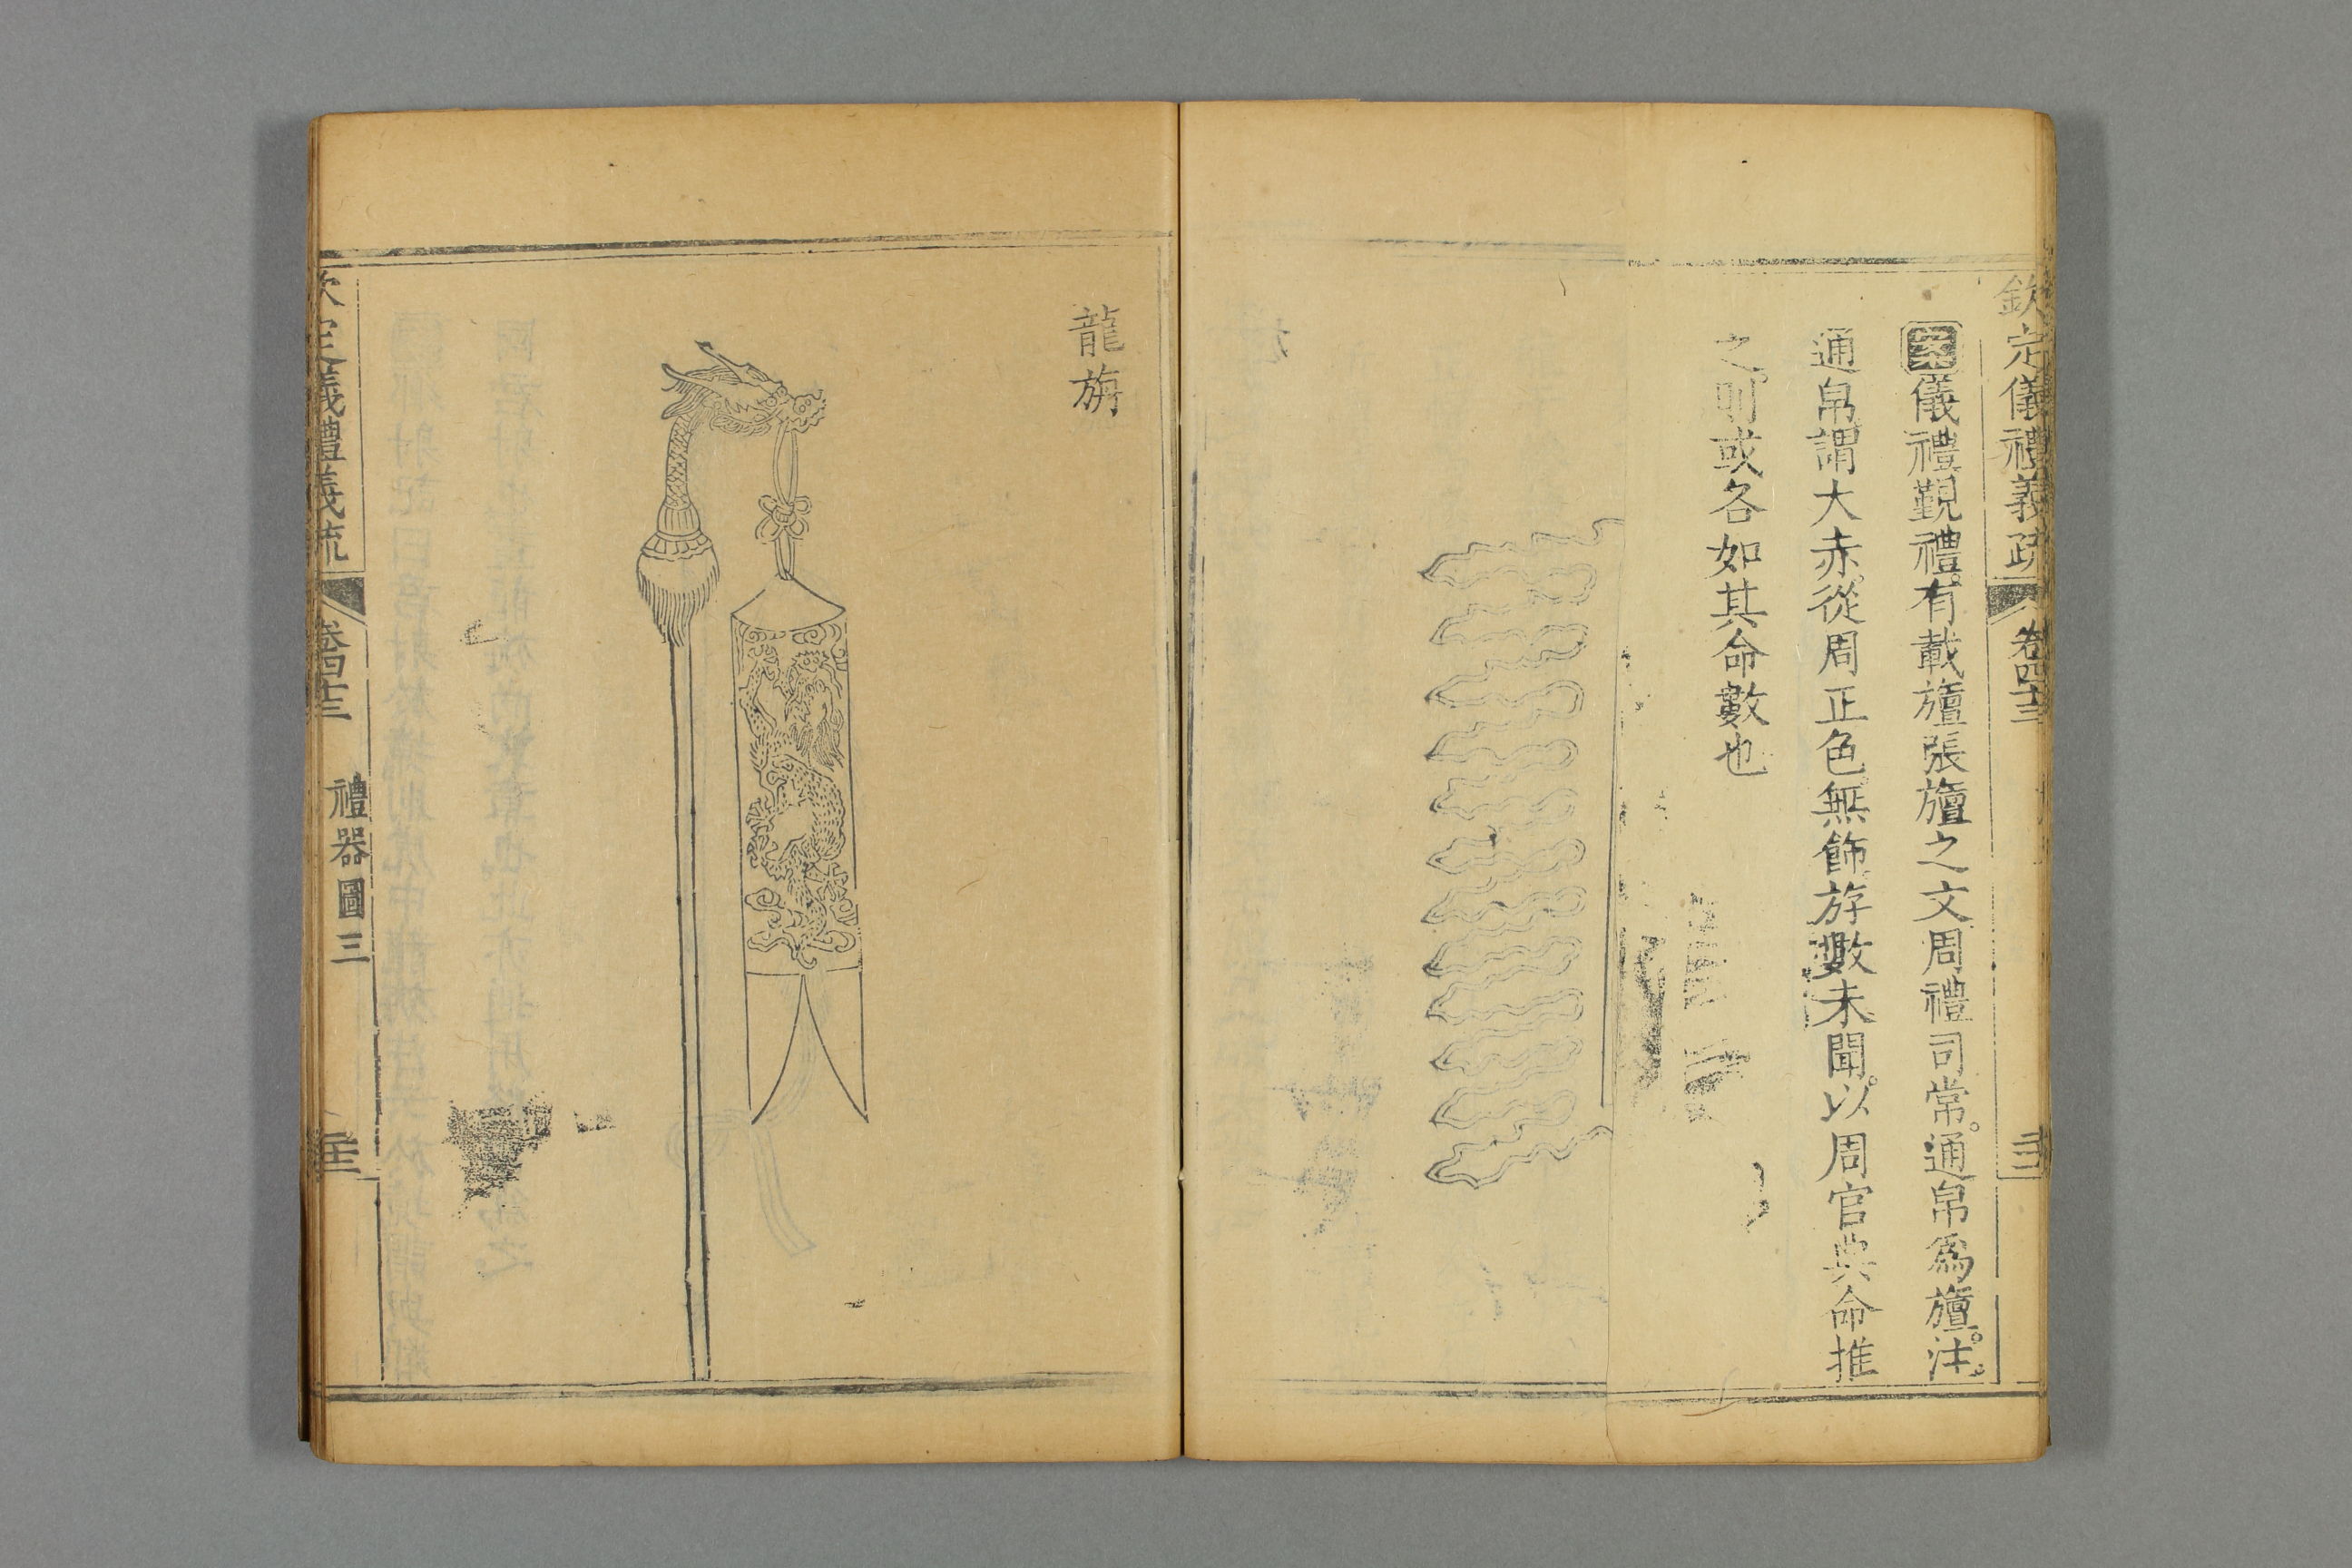 欽定儀禮義疏 卷四十三
案儀禮覲禮。有載旜張旜之文周禮司常。通帛爲旜。注。
通帛謂大赤。從周正色無飾斿數未聞。以周官典命推
之。則或各如其命數也
龍旃
欽定儀禮義疏 卷四十三 禮器圖三